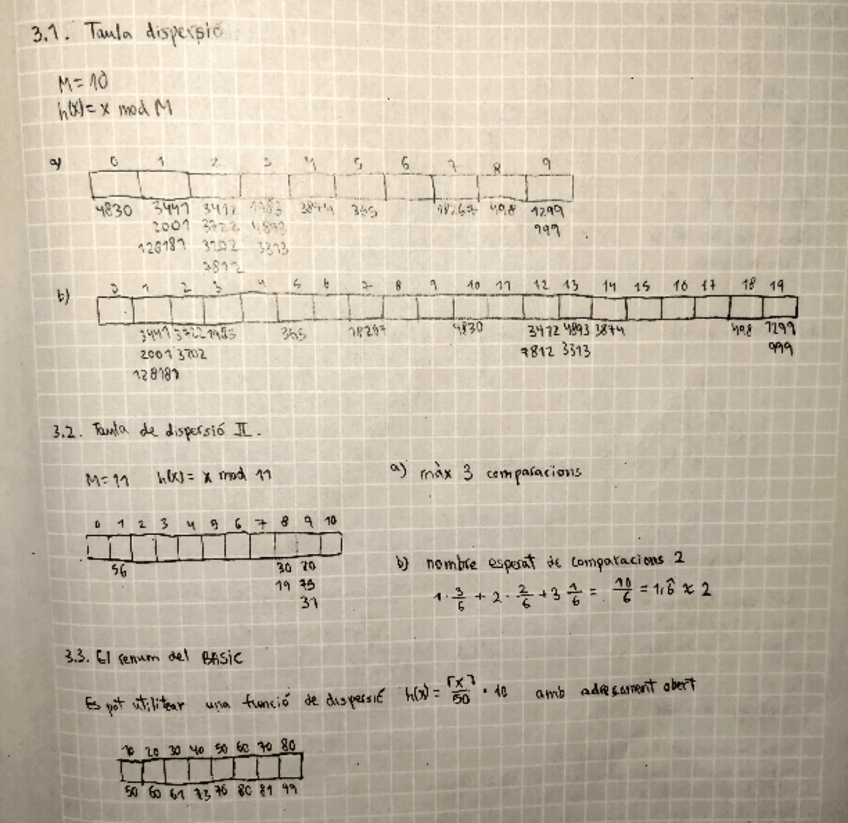 3.1. Taula dispersió
M = 10
h(x) = x mod M
a) 0 1 2 3 4 5 6 7 8 9
4830 3441 3412 3874 365 498 1299
2001 3722 4893 999
128181 3202 3313
7812
b) 0 1 2 3 4 5 6 7 8 9 10 11 12 13 14 15 16 17 18 19
3441 3722 1983 365 18267 4830 3412 4893 3874 498 1299
2001 3202 7812 3313 999
128181
3.2. Taula de dispersió II.
M = 11 h(x) = x mod 11
a) màx 3 comparacions
0 1 2 3 4 5 6 7 8 9 10
56 30 20
19 75
31
b) nombre esperat de comparacions 2
1 · 3/6 + 2 · 2/6 + 3 1/6 = 10/6 = 1,6̂ ≈ 2
3.3. El renum del BASIC
Es pot utilitzar una funció de dispersió h(x) = ⌈x⌉/50 · 10 amb adreçament obert
10 20 30 40 50 60 70 80
50 60 61 73 76 80 81 99